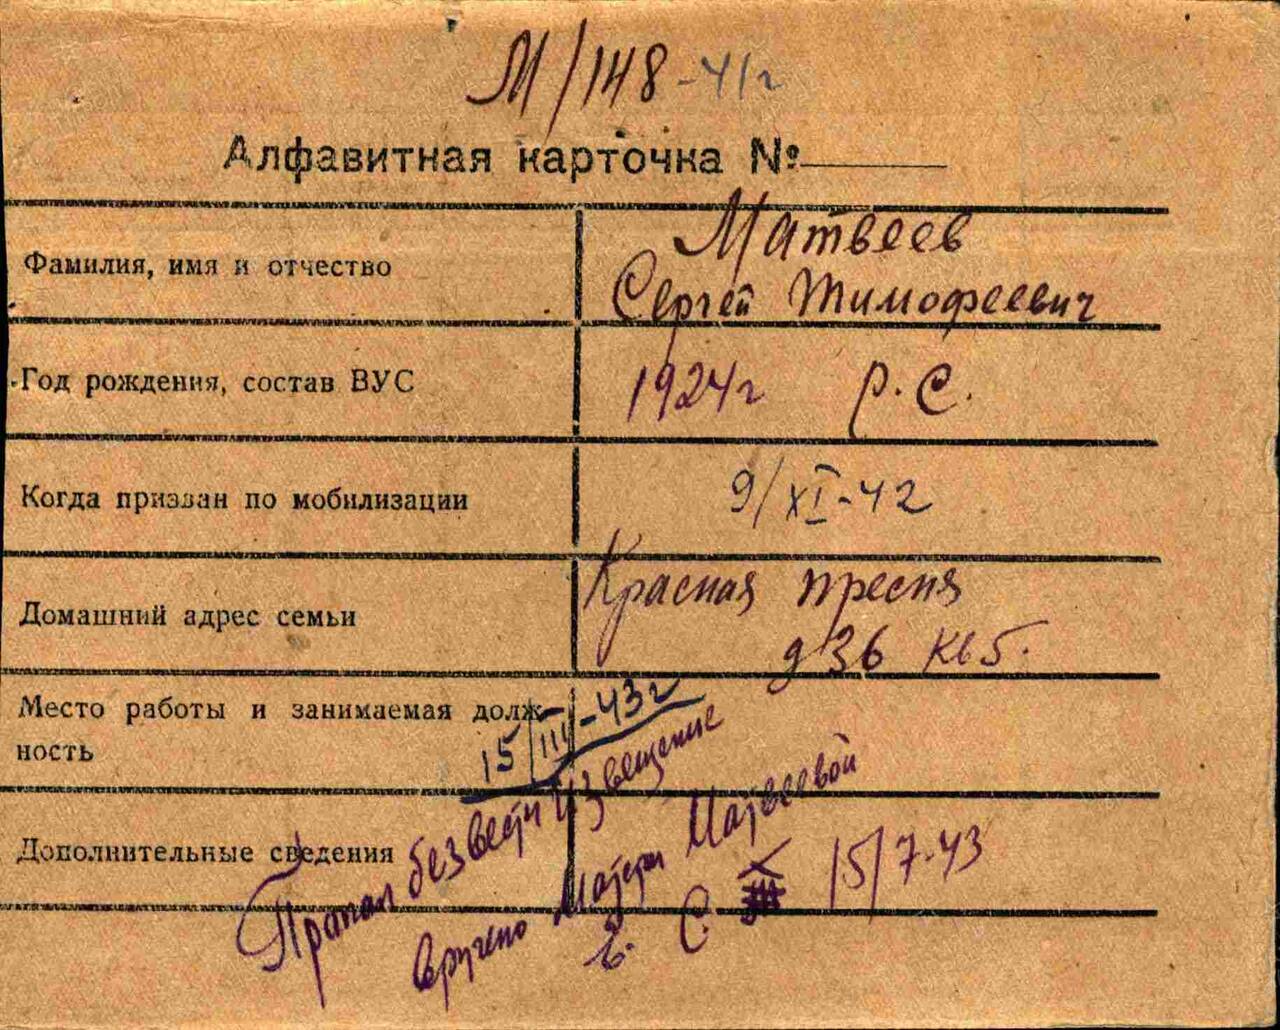 М/148-41г
Алфавитная карточка №
Фамилия, имя и отчество
Матвеев
Сергей Тимофеевич
Год рождения, состав ВУС
1924г р.С.
Когда призван по мобилизации
9/XI-42
Домашний адрес семьи
Красная пресня
д 36 кв 5.
Место работы и занимаемая долж-
ность
15/III-43г
Дополнительные сведения
Пропал без вести извещение
вручено матери Матвеевой
С. 15/7-43